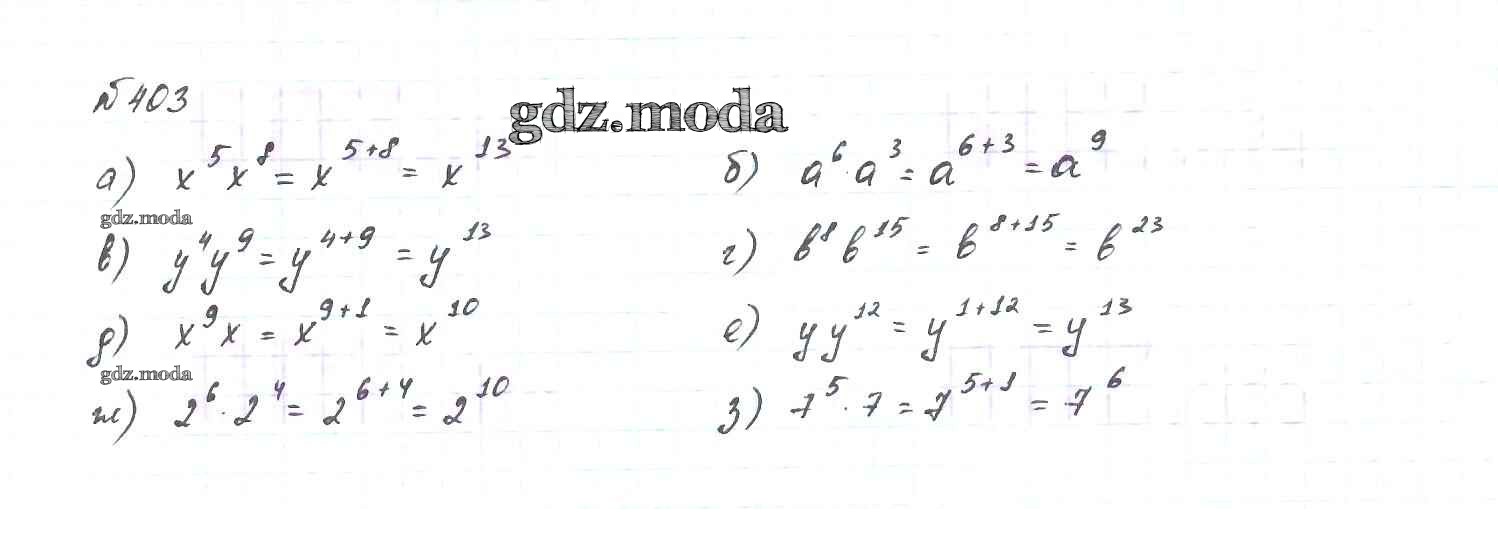 №403
gdz.moda
а) x⁵x⁸ = x⁵⁺⁸ = x¹³ б) a⁶·a³ = a⁶⁺³ = a⁹
gdz.moda
в) y⁴y⁹ = y⁴⁺⁹ = y¹³ г) b⁸b¹⁵ = b⁸⁺¹⁵ = b²³
д) x⁹x = x⁹⁺¹ = x¹⁰ е) yy¹² = y¹⁺¹² = y¹³
gdz.moda
ж) 2⁶·2⁴ = 2⁶⁺⁴ = 2¹⁰ з) 7⁵·7 = 7⁵⁺¹ = 7⁶